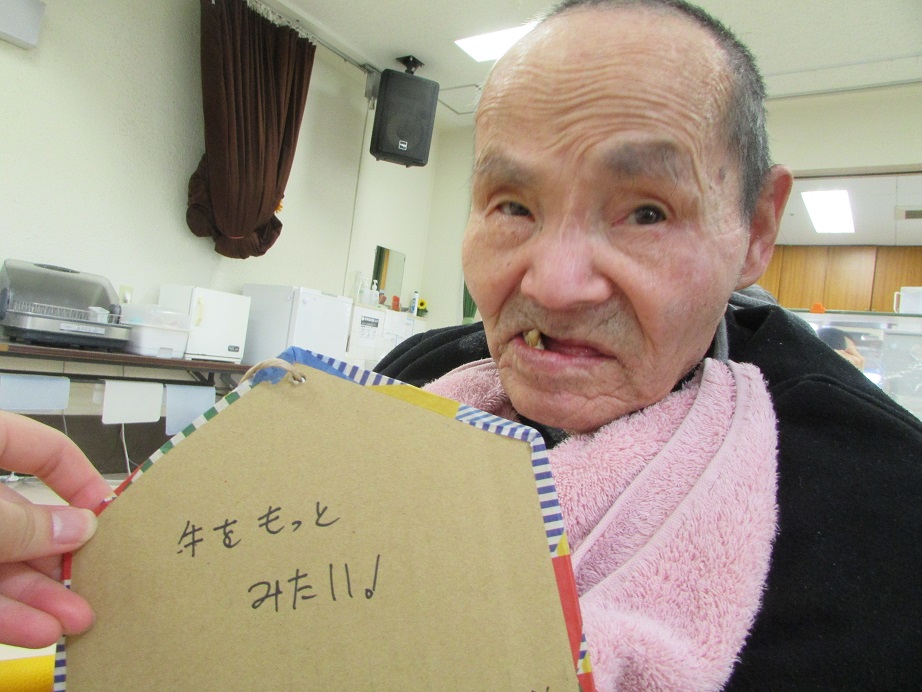 牛をもっと
みたい!